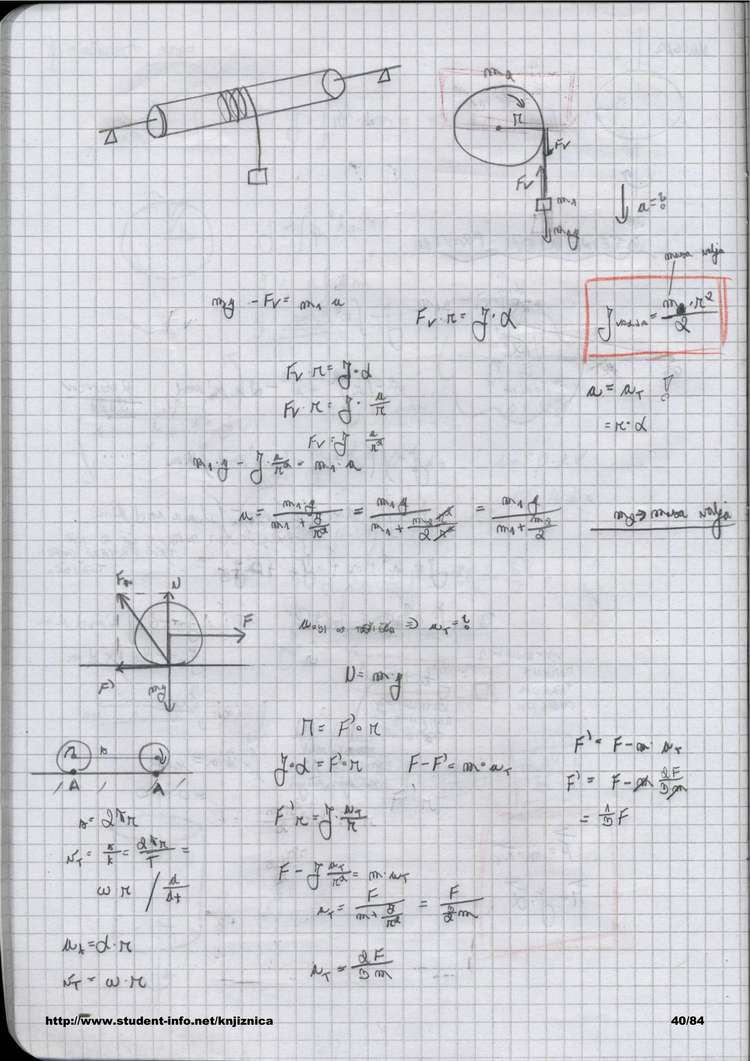 m₂
r
Fv
Fv
m₁
m₁g
a = ?
masa valja
m₁g - Fv = m₁ a
Fv · r = J · α
J valja = m · r² / 2
Fv · r = J · α
a = aT !
Fv · r = J · a/r
= r · α
Fv = J a/r²
m₁ · g - J · a/r² = m₁ · a
a = m₁ · g / (m₁ + J/r²) = m₁ g / (m₁ + m₂ r²/2 r²) = m₁ g / (m₁ + m₂/2)
m₂ → masa valja
N
F
F'
mg
aT = ?
N = m g
M = F' · r
J · α = F' · r
F - F' = m · aT
F' = F - m · aT
F' = F - m 2F/3m
= 1/3 F
r
s
A
A
s = 2πr
F' r = J · aT/r
vT = s/t = 2πr/T =
ω r / d/dt
F - J aT/r² = m · aT
aT = F / (m + J/r²) = F / (3/2 m)
at = α · r
vT = ω · r
aT = 2F/3m
http://www.student-info.net/knjiznica
40/84